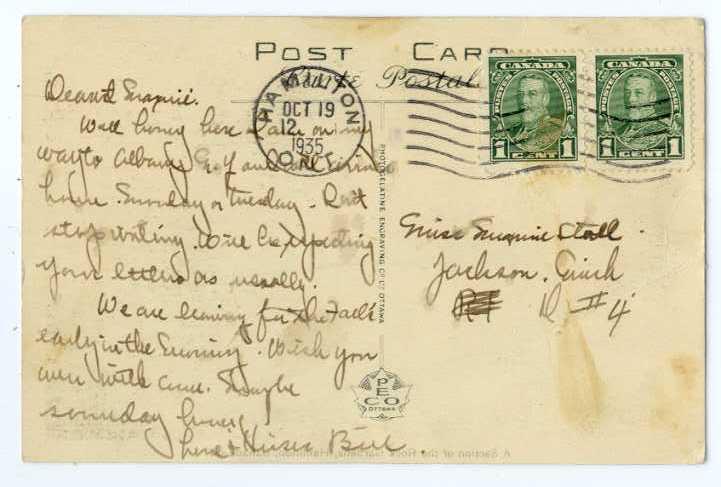 POST CARD
Carte Postale
HAMILTON
OCT 19
12
1935
ONT.
CANADA
POSTES POSTAGE
1 CENT 1
CANADA
POSTES POSTAGE
1 CENT 1
Well honey here I am on my
way to Albany
home Sunday or tuesday. Don't
stop writing. Will be expecting
your letters as usually.
We are leaving for the Falls
early in the Morning. Wish you
were with me. Maybe
someday honey
love + Kisses Bill
Miss Stall
Jackson, Mich
R #4
PHOTOGELATINE ENGRAVING CO. LTD. OTTAWA
PECO
OTTAWA
A Section of the Rock Gardens, Hamilton, Canada